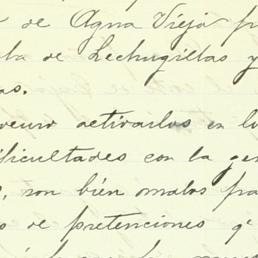 de Agua Vieja
de Lechugillas y
as.
activarlos en lo
dificultades con la gen
, son bién malos pa
o de pretenciones q